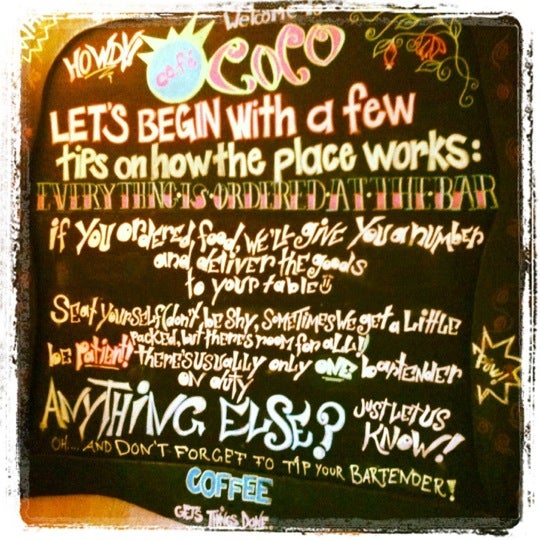 Welcome
HOWDY café COCO
LET'S BEGIN with a few
tips on how the place works:
EVERYTHING·IS·ORDERED·AT·THE·BAR
if you ordered food, we'll give you a number
and deliver the goods
to your table
Seat yourself (don't be shy, sometimes we get a little
packed, but there's room for all!)
be patient! - there's usually only one bartender
on duty
ANYTHING ELSE? JUST LET US
KNOW!
OH... AND DON'T FORGET TO TIP YOUR BARTENDER!
POW!
COFFEE
GETS THINGS DONE